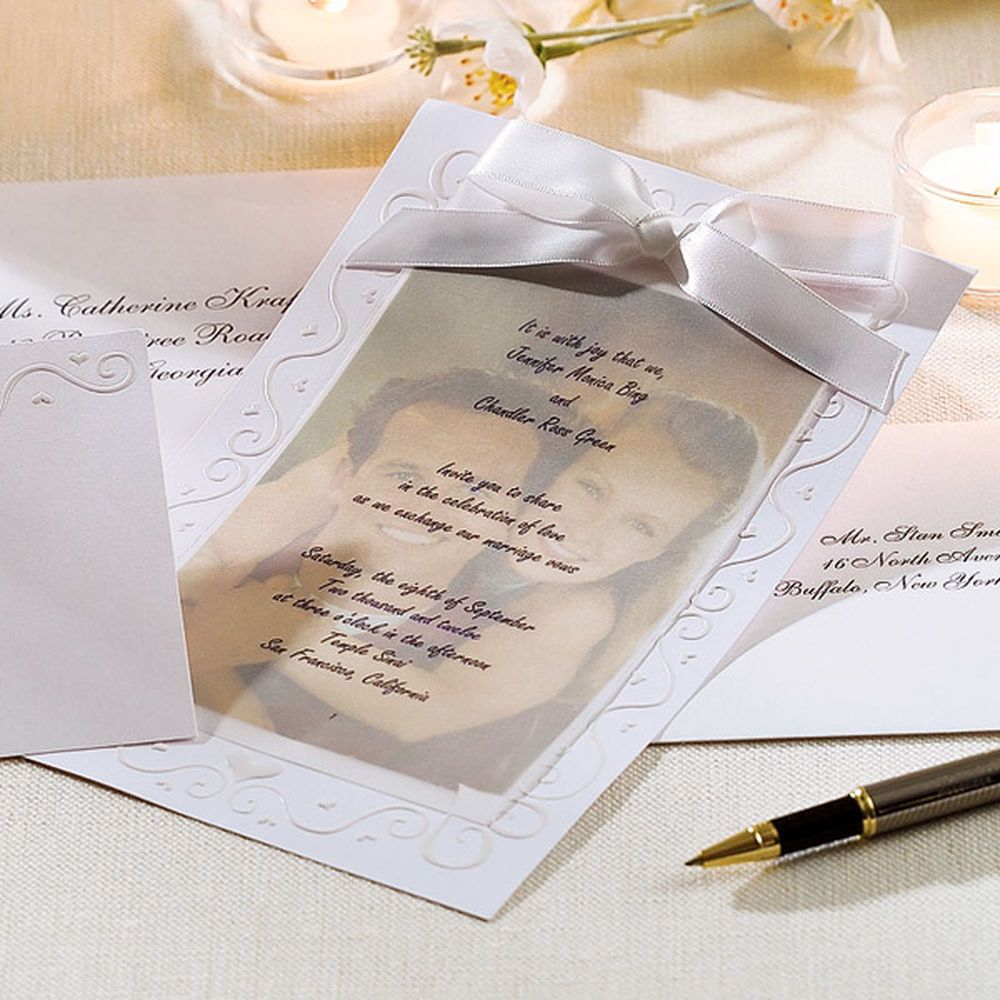 It is with joy that we,
Jennifer Monica Bing
and
Chandler Ross Green
Invite you to share
in the celebration of love
as we exchange our marriage vows
Saturday, the eighth of September
Two thousand and twelve
at three o'clock in the afternoon
Temple Sinai
San Francisco, California
Ms. Catherine
Georgia
Mr. Stan
16 North
Buffalo, New York